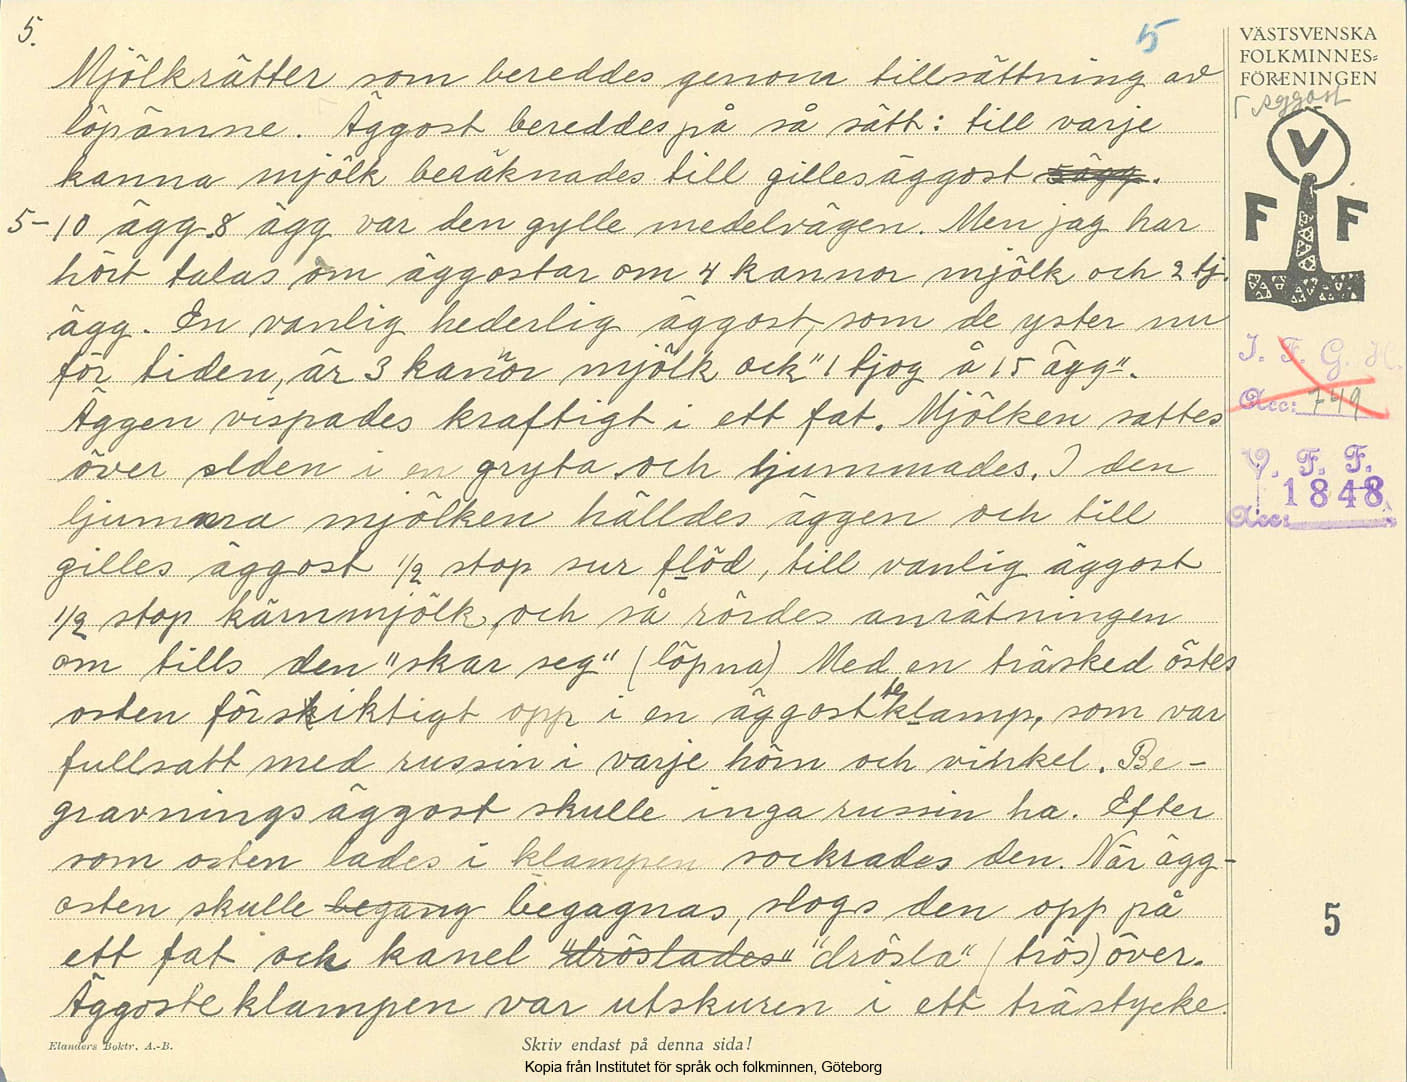 5.
5
VÄSTSVENSKA
FOLKMINNES=
FÖRENINGEN
Äggost
V
F F
Mjölkrätter som bereddes genom tillsättning av
löpämne. Äggost bereddes på så sätt: till varje
kanna mjölk beräknades till gillesäggost 5 ägg.
5–10 ägg. 8 ägg var den gylle medelvägen. Men jag har
hört talas om äggostar om 4 kannor mjölk och 2 tj.
ägg. En vanlig hederlig äggost, som de yster nu
för tiden, är 3 kanor mjölk ock "1 tjog å 15 ägg".
Äggen vispades kraftigt i ett fat. Mjölken sattes
över elden i en gryta och ljummades. I den
ljumma mjölken hälldes äggen och till
gilles äggost 1/2 stop sur flöd, till vanlig äggost
1/2 stop kärnmjölk, och så rördes anrätningen
om tills den "skar seg" (löpna) Med en träsked östes
osten försiktigt opp i en äggosteklamp, som var
fullsatt med russin i varje hörn och vinkel. Be-
gravningsäggost skulle inga russin ha. Efter
som osten lades i klampen sockrades den. När ägg-
osten skulle begang begagnas, slogs den opp på
ett fat ock kanel "dröslades" "drösla" (trös) över.
Äggosteklampen var utskuren i ett trästycke.
I. F. G. H.
Acc: 749
V. F. F.
Acc: 1848
5
Elanders Boktr. A.-B.
Skriv endast på denna sida!
Kopia från Institutet för språk och folkminnen, Göteborg